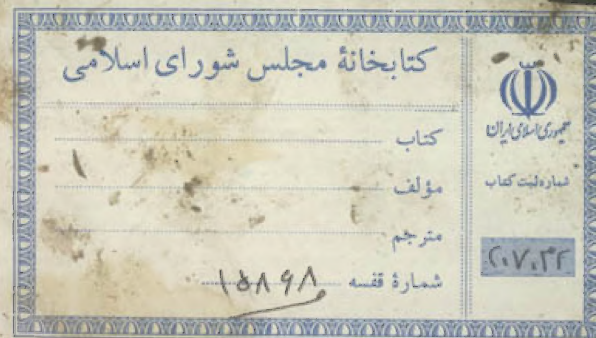 کتابخانهٔ مجلس شورای اسلامی
کتاب
مؤلف
مترجم
شمارهٔ قفسه ۱۵۸۹۸
جمهوری اسلامی ایران
شماره ثبت کتاب
۲۰۷۰۳۲